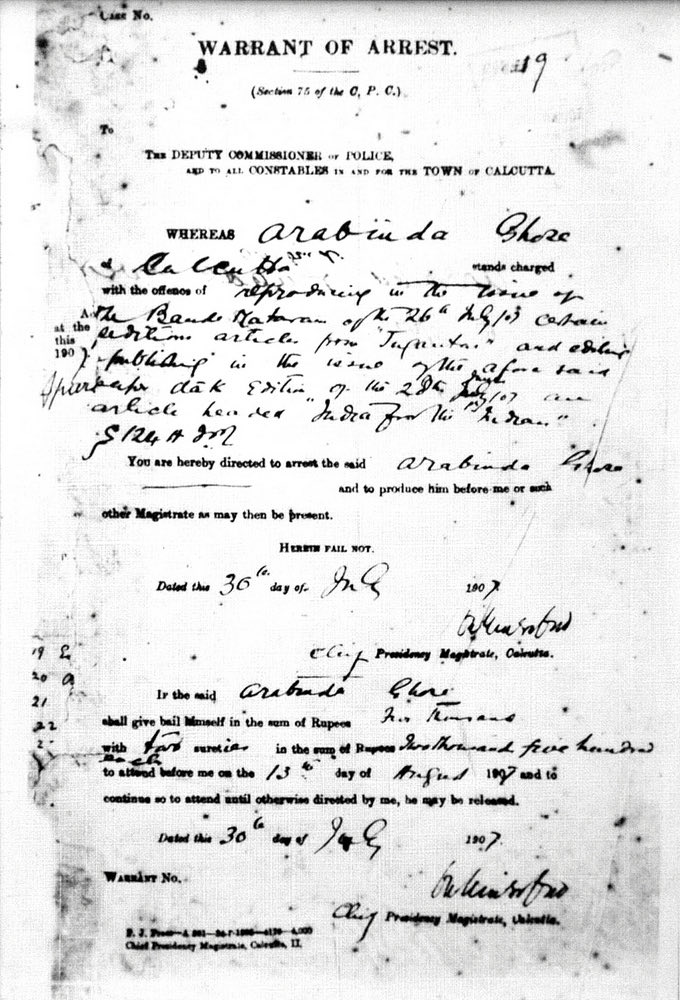 Case No.
WARRANT OF ARREST.
19
(Section 75 of the C, P. C.)
To
THE DEPUTY COMMISSIONER OF POLICE,
AND TO ALL CONSTABLES IN AND FOR THE TOWN OF CALCUTTA.
WHEREAS Arabinda Ghose
of Calcutta stands charged
with the offence of reproducing in the issue of
The Bande Mataram of the 26th July/07 certain
seditious articles from "Jugantar" and
at the
this
190
publishing in the issue of the aforesaid
paper dak Edition of the 28th /07 an
article headed "India for the Indian"
You are hereby directed to arrest the said Arabinda Ghose
and to produce him before me or such
other Magistrate as may then be present.
HEREIN FAIL NOT.
Dated this 30th day of July 1907.
Chief Presidency Magistrate, Calcutta.
19
20
21
22
If the said Arabinda Ghose
shall give bail himself in the sum of Rupees Thousand
with two sureties in the sum of Rupees Two thousand five hundred
each
to attend before me on the 13th day of August 1907 and to
continue so to attend until otherwise directed by me, he may be released.
Dated this 30th day of July 1907.
WARRANT No.
Chief Presidency Magistrate, Calcutta.
Chief Presidency Magistrate, Calcutta, II.